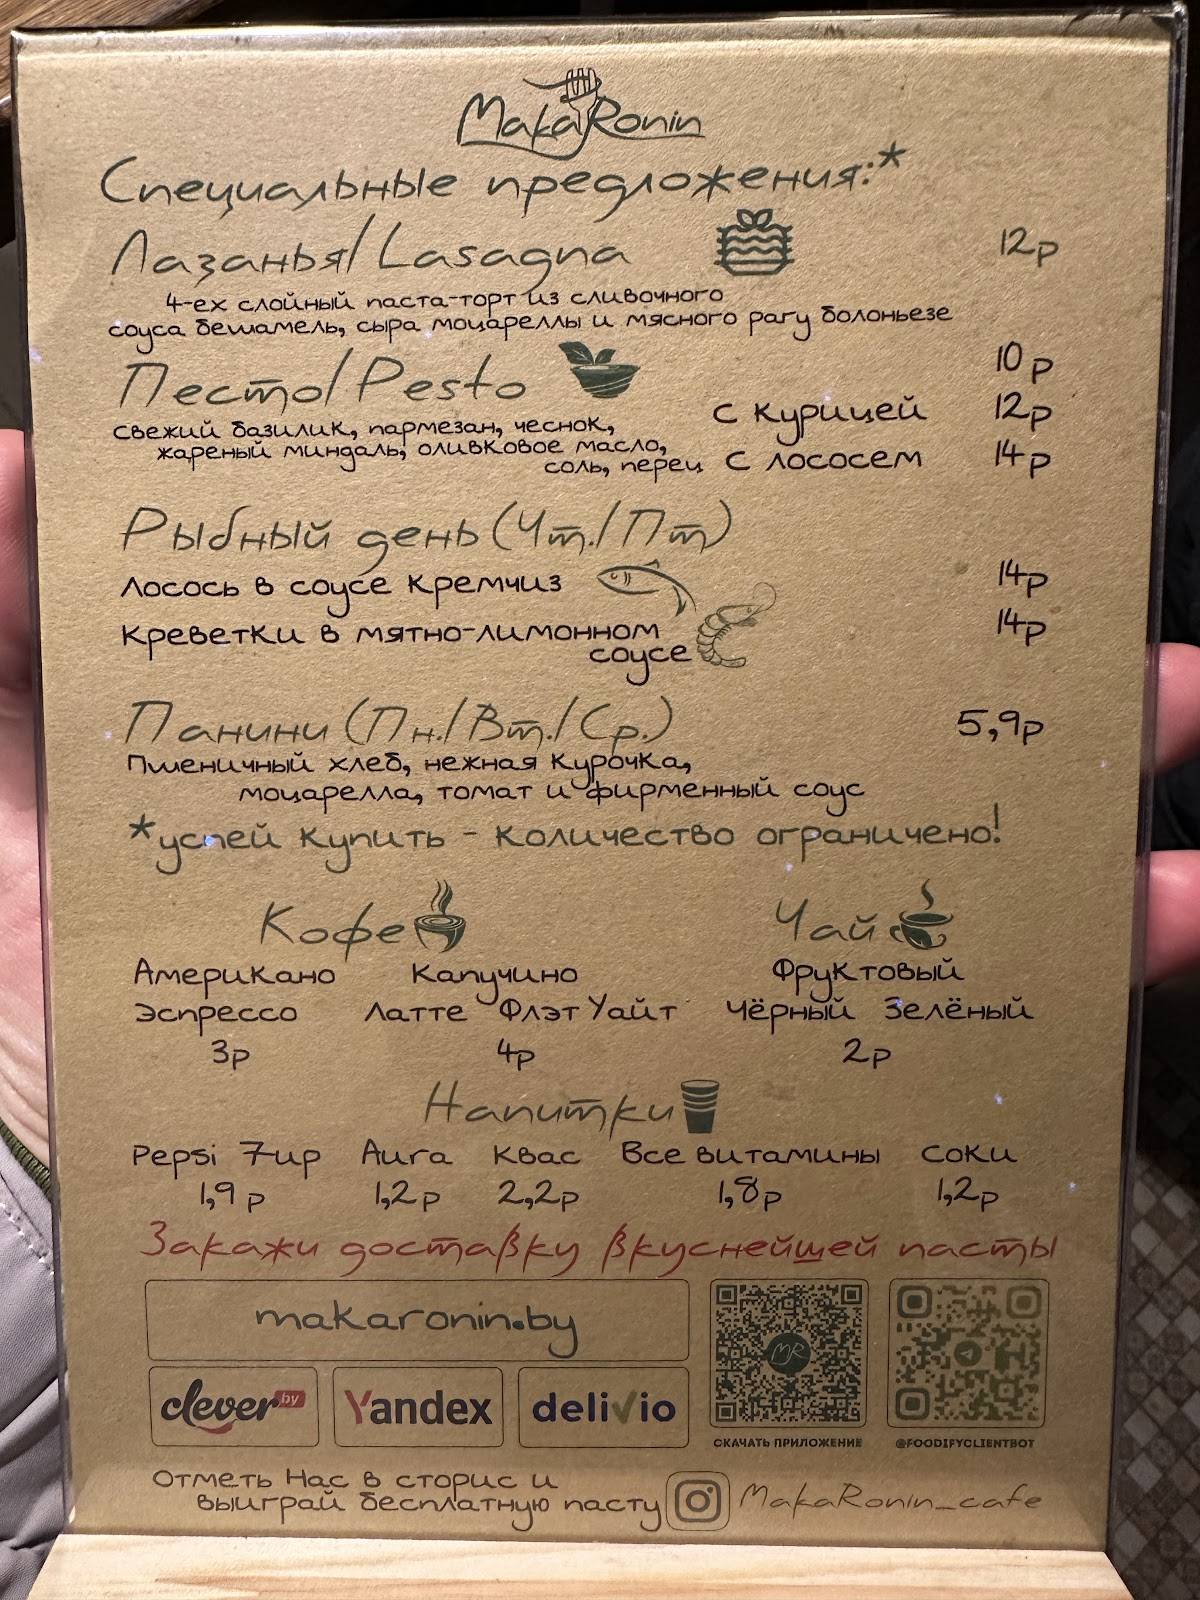 MakaRonin
Специальные предложения:*
Лазанья/Lasagna 12р
4-ех слойный паста-торт из сливочного
соуса бешамель, сыра моцареллы и мясного рагу болоньезе
Песто/Pesto 10р
свежий базилик, пармезан, чеснок, с курицей 12р
жареный миндаль, оливковое масло,
соль, перец с лососем 14р
Рыбный день (Чт./Пт)
Лосось в соусе кремчиз 14р
Креветки в мятно-лимонном 14р
соусе
Панини (Пн./Вт./Ср.) 5,9р
Пшеничный хлеб, нежная курочка,
моцарелла, томат и фирменный соус
*успей купить - количество ограничено!
Кофе Чай
Американо Капучино Фруктовый
Эспрессо Латте Флэт Уайт Чёрный Зелёный
3р 4р 2р
Напитки
Pepsi 7up Aura Квас Все витамины Соки
1,9р 1,2р 2,2р 1,8р 1,2р
Закажи доставку вкуснейшей пасты
makaronin.by
MR
clever by Yandex delivio
СКАЧАТЬ ПРИЛОЖЕНИЕ @FOODIFYCLIENTBOT
Отметь Нас в сторис и
выиграй бесплатную пасту MakaRonin_cafe